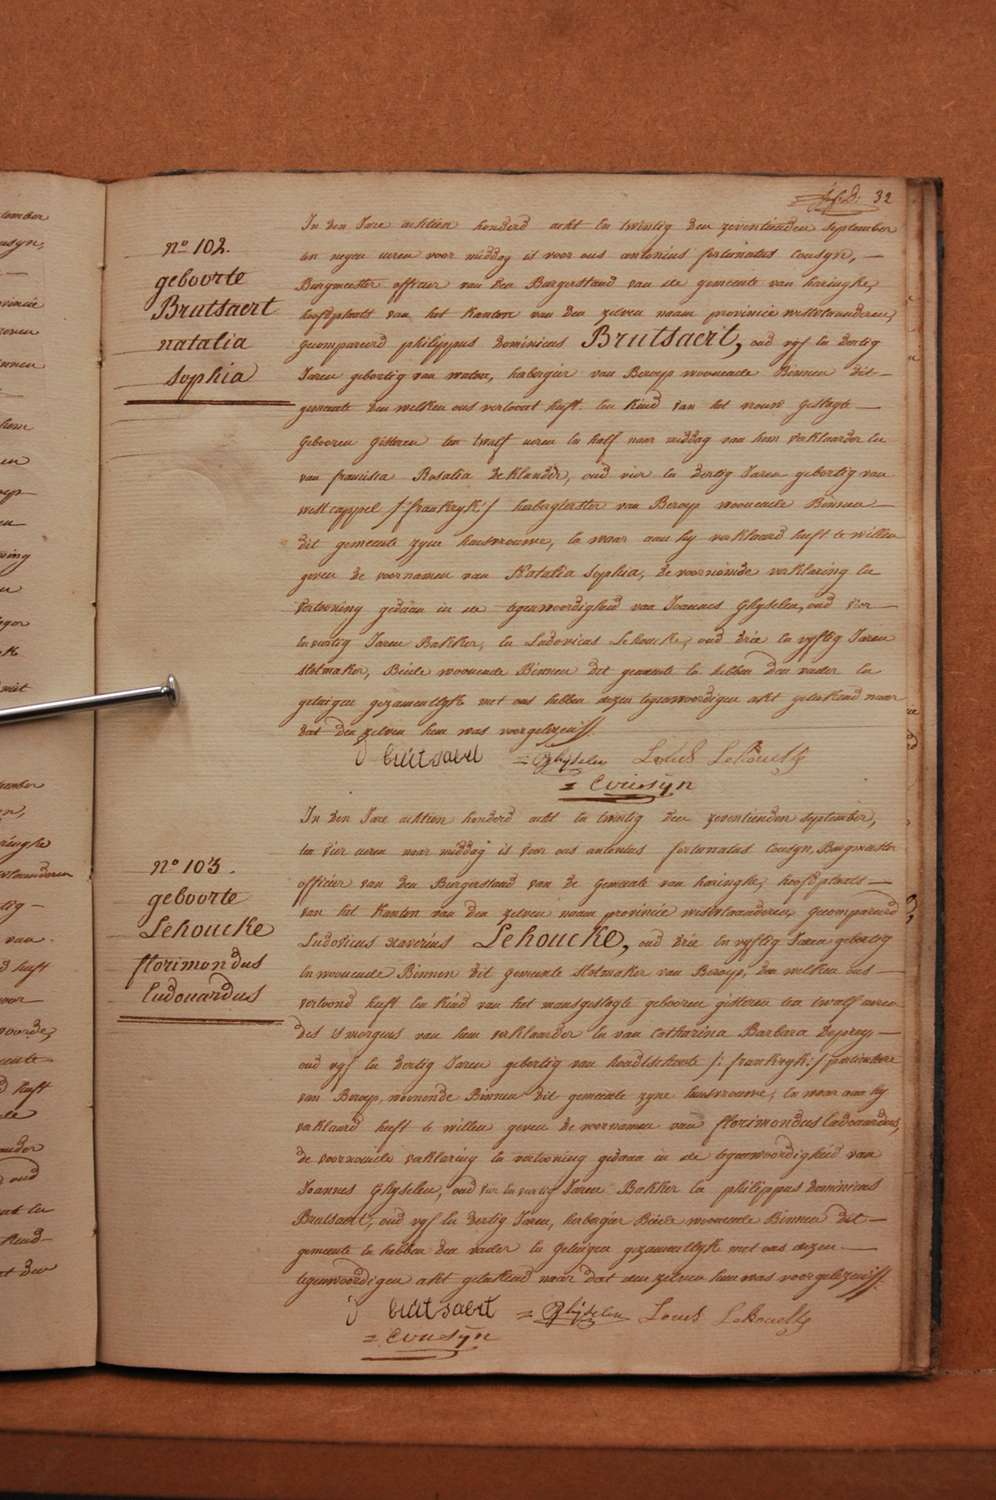 32
n.º 102.
geboorte
Brutsaert
natalia
sophia
In den Jare achtien honderd acht en twintig den zeventienden september
om negen uren voor middag is voor ons antonius fortunatus cousyn, —
Burgmeester officier van den Burgerstand van de gemeente van haringhe,
hoofdplaats van het Kanton van den zelven naam provincie westvlaanderen,
gecompareerd philippus Dominicus Brutsaert, oud vyf en dertig
Jaren gebortig van waton, herbergier van Beroep woonende Binnen dit—
gemeente den welken ons vertoont heeft een Kind van het vrouwe geslagte —
gebooren gisteren ten twalf uren en half naar middag van hem verklaarder en
van francisca Rosalia deKlaudde, oud vier en dertig Jaren gebortig van
westcappel /:frankryk:/ herbergierster van Beroep woonende Binnen—
dit gemeente zyne huisvrouwe, en waar aan hy verklaard heeft te willen
geven de voornamen van Natalia Sophia, de voornoemde verklaring en
vertooning gedaan in de tegenwoordigheid van Joannes Ghyselen, oud vier—
en veertig Jaren Bakker, en Ludovicus Lehoucke, oud drie en vyftig Jaren
slotmaker, Beide woonende Binnen dit gemeente en hebben den vader en
getuigen gezamentlyk met ons hebben dezen tegenwoordigen akt geteekend naar
dat den zelven hem was voorgelezen.
Brütsaert = Ghyselen Louis Lehoucke
= Cousÿn
n.º 103.
geboorte
Lehoucke
florimondus
Eedouardus
In den Jare achtien honderd acht en twintig den zeventienden september,
ten vier uren naar middag is voor ons antonius fortunatus cousyn, Burgmeester
officier van den Burgerstand van de gemeente van haringhe, hoofdplaats —
van het Kanton van den zelven naam provincie westvlaanderen, gecompareerd
Ludovicus xaverius Lehoucke, oud drie en vyftig Jaren gebortig
en woonende Binnen dit gemeente slotmaker van Beroep, den welken ons —
vertoond heeft een kind van het mansgeslagte gebooren gisteren ten twalf uren
des s morgens van hem verklaarder en van Catharina Barbara Depreys —
oud vyf en dertig Jaren gebortig van hondtschoote /: frankryk:/ particuliere
van Beroep, woonende Binnen dit gemeente zyne huisvrouwe, en waar aan hy
verklaard heeft te willen geven de voornamen van florimondus Eedouardus,
de voornoemde verklaring en vertooning gedaan in de tegenwoordigheid van
Joannes Ghyselen, oud vier en veertig Jaren Bakker en philippus dominicus
Brutsaert, oud vyf en dertig Jaren, herbergier Beide woonende Binnen dit —
gemeente en hebben den vader en Getuigen gezamentlyk met ons dezen —
tegenwoordigen akt geteekend naar dat den zelven hem was voorgelezen.
Brütsaert = Ghyselen Louis Lehoucke
= Cousÿn